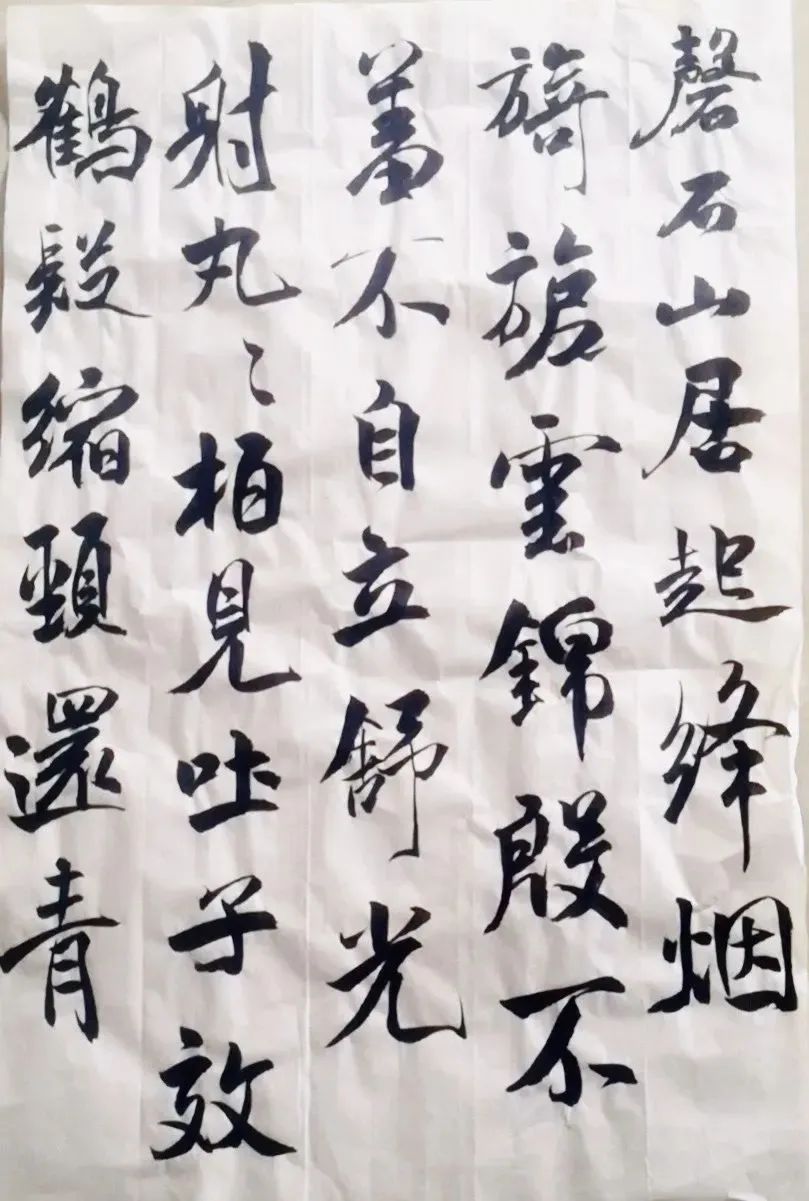 磬石山居起绛烟
旖旎雲錦殷不
羞不自立舒光
射丸〻柏見吐子效
鶴髮縮頸還青